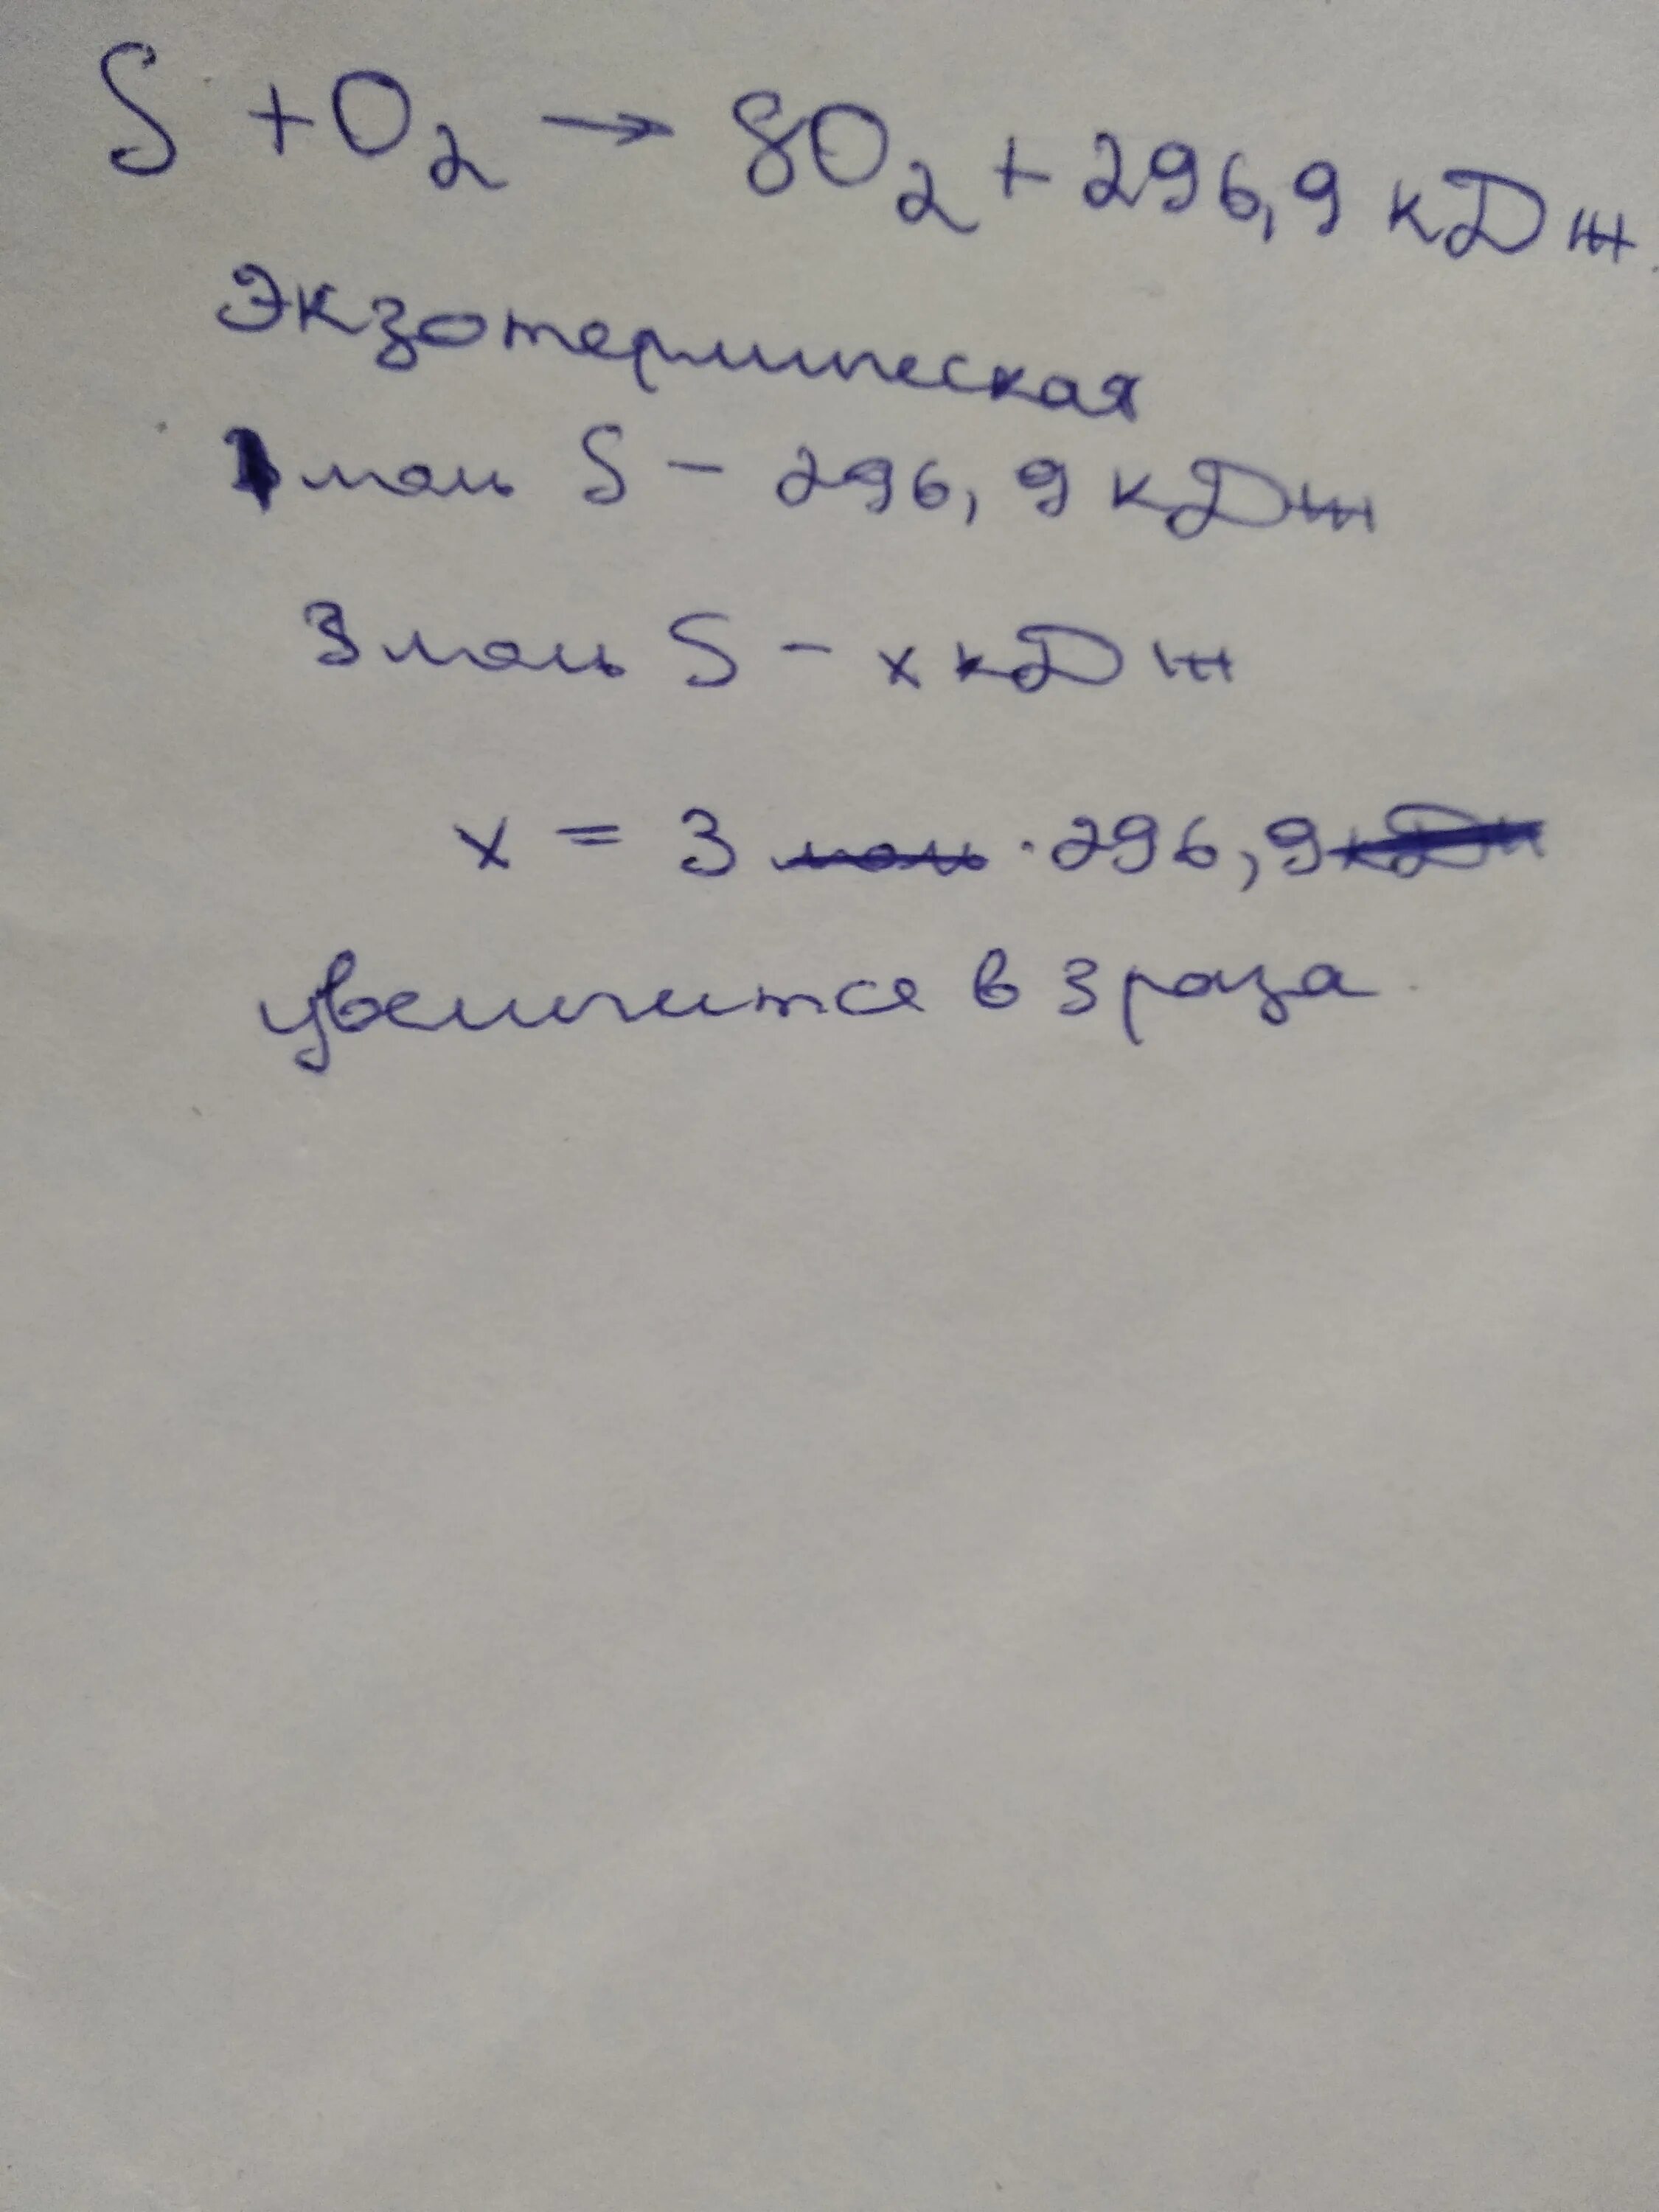 S + O₂ → SO₂ + 296,9 кДж
Экзотермическая
1 моль S – 296,9 кДж
3 моль S – x кДж
x = 3 моль · 296,9 кДж
увеличится в 3 раза